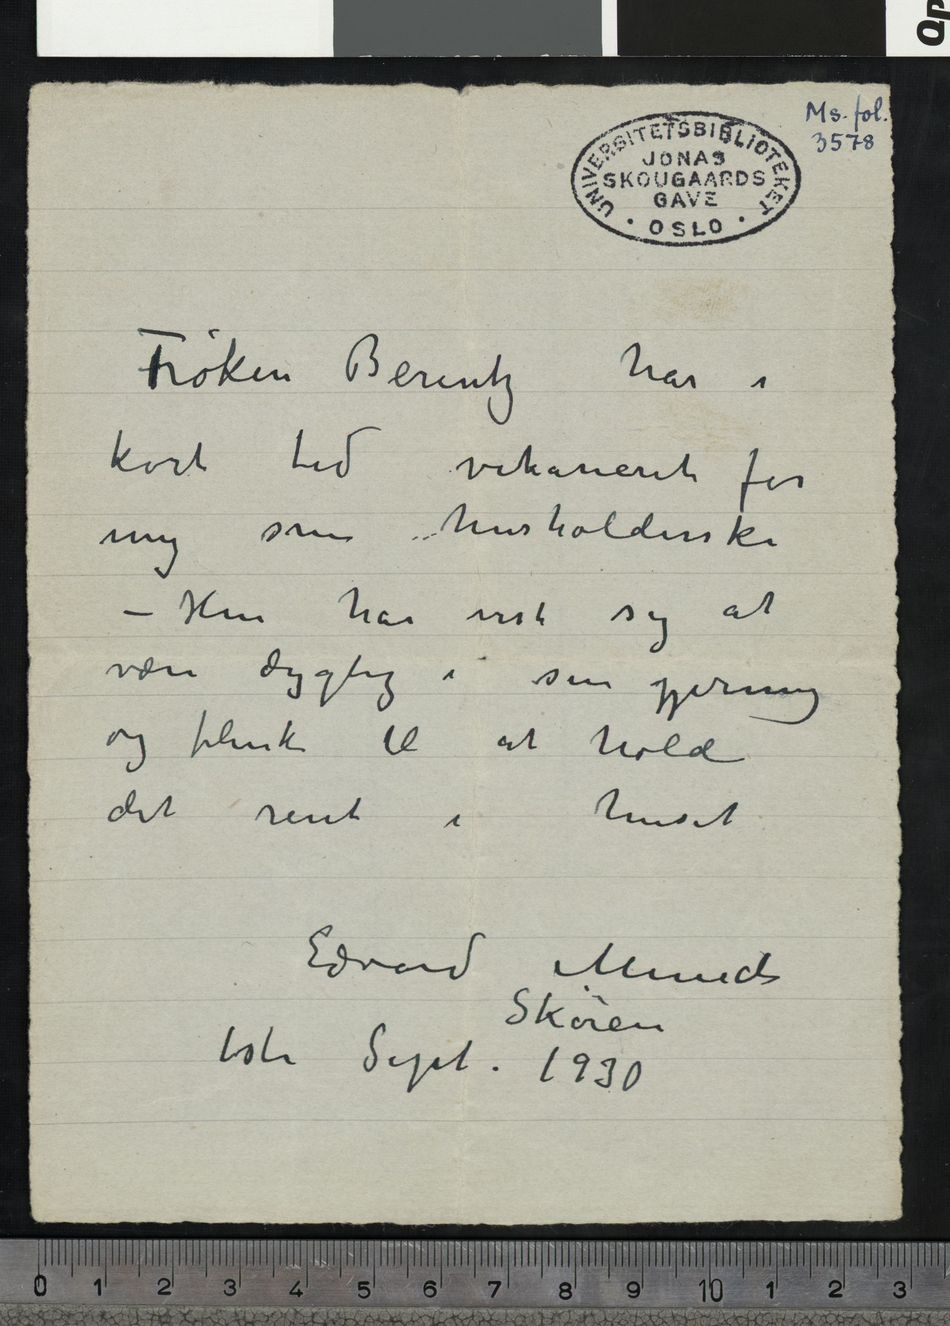 Ms. fol.
3578
UNIVERSITETSBIBLIOTEKET
JONAS
SKOUGAARDS
GAVE
OSLO
Frøken Berentz har i
kort tid vikarieret for
mig som husholderske
– Hun har vist sig at
være dygtig i sin gjerning
og flink til at hold
det rent i huset
Edvard Munch
Skøien
1ste Sept. 1930
0 1 2 3 4 5 6 7 8 9 10 1 2 3